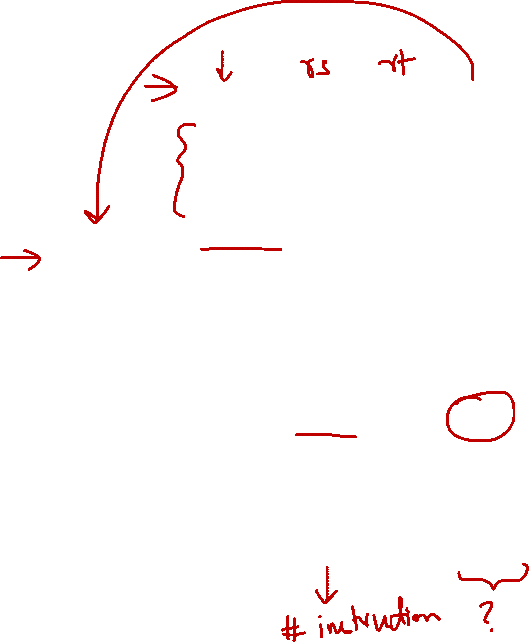 rs rt
# instruction ?